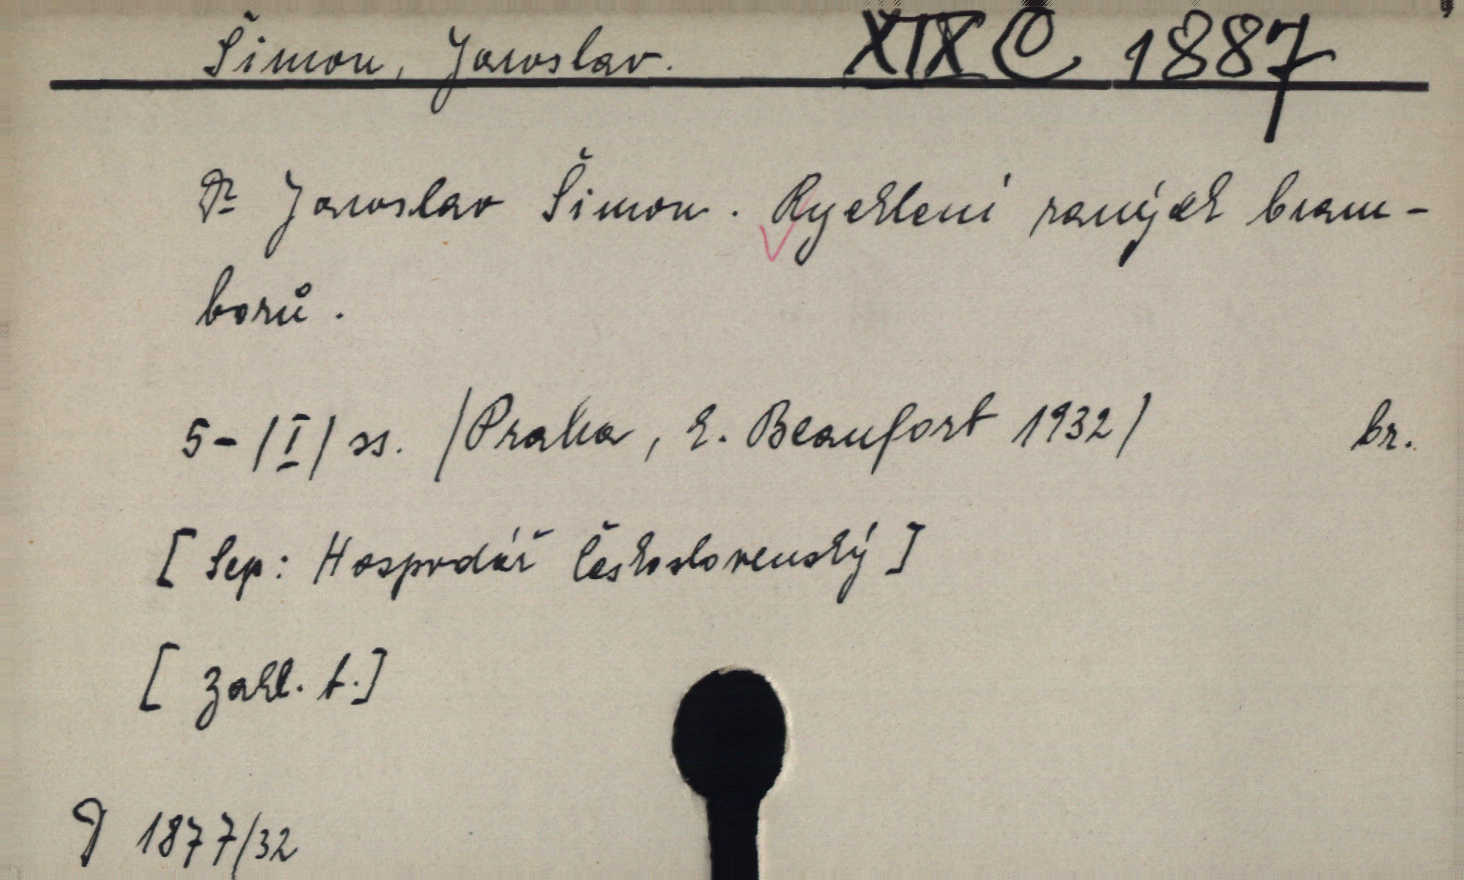 Šimon, Jaroslav. XIX C 1887
Dr Jaroslav Šimon. Rychlení raných bram-
borů.
5-/I/ ss. /Praha, E. Beaufort 1932/ br.
[Sep: Hospodář Československý]
[Zákl. t.]
D 1877/32